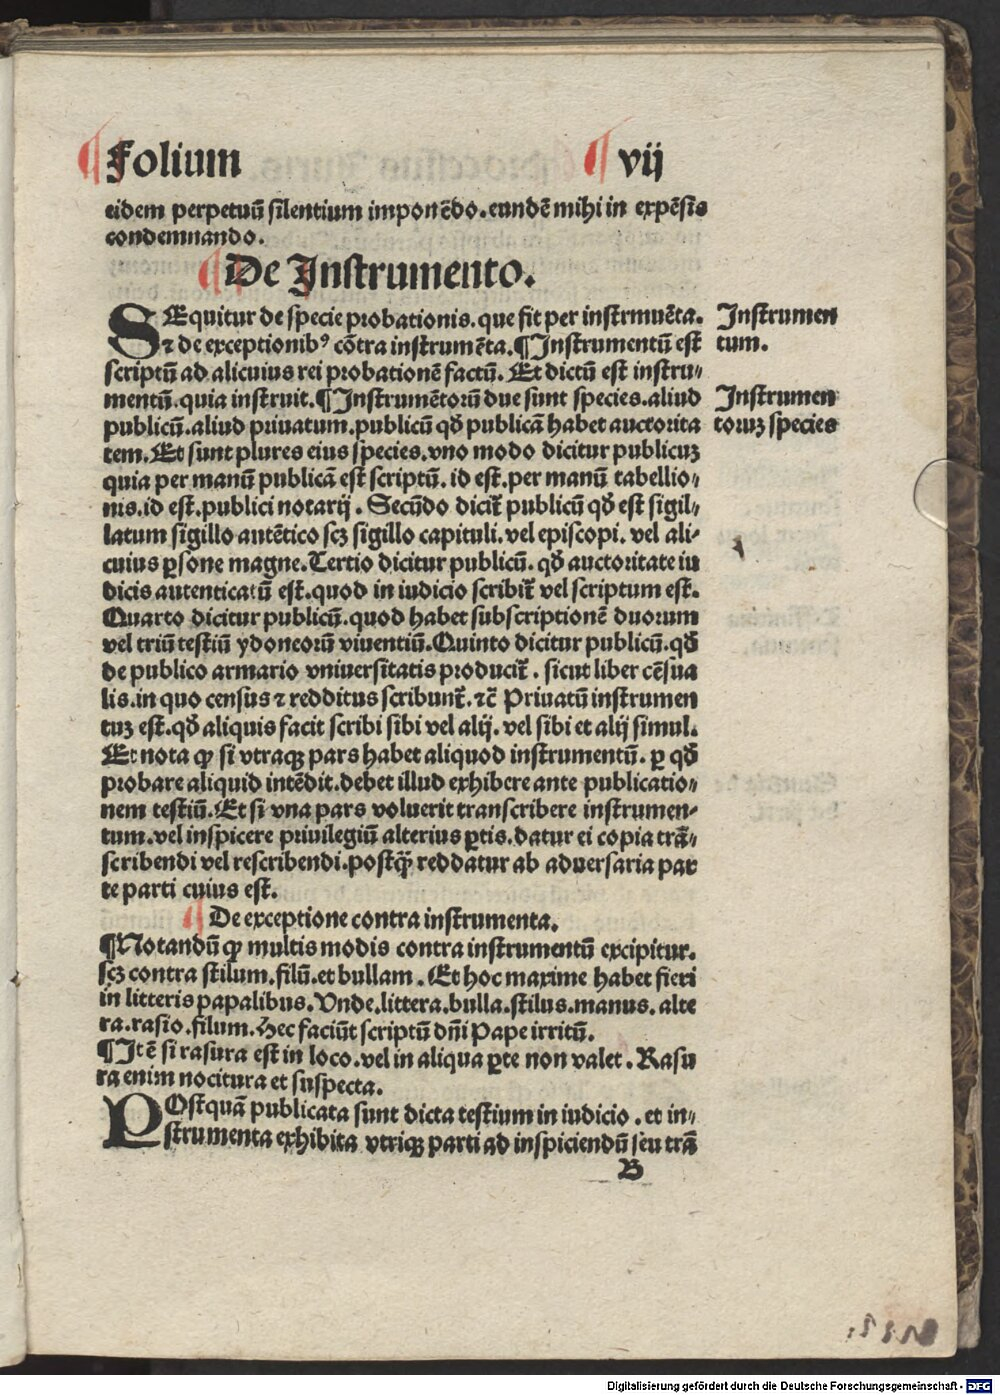 ¶ Folium ¶ vij
eidem perpetuū silentium imponēdo.eundē mihi in expēsis
condemnando.
¶ De Instrumento.
SEquitur de specie probationis.que fit per instrmuēta.
⁊ de exceptionibꝰ cōtra instrumēta.¶Instrumentū est
scriptū ad alicuius rei probationē factū. Et dictū est instru⸗
mentū.quia instruit.¶Instrumētorū due sunt species.aliud
publicū.aliud priuatum.publicū qđ publicā habet auctorita
tem.Et sunt plures eius species.vno modo dicitur publicuꝫ
quia per manū publicā est scriptū. id est.per manū tabellio⸗
nis.id est.publici notarij. Secūdo dicit̄ publicū qđ est sigil⸗
latum sigillo autētico scꝫ sigillo capituli.vel episcopi. vel ali⸗
cuius ꝑsone magne.Tertio dicitur publicū. qđ auctoritate iu
dicis autenticatū est.quod in iudicio scribit̄ vel scriptum est.
Quarto dicitur publicū.quod habet subscriptionē duorum
vel triū testiū ydoneorū viuentiū.Quinto dicitur publicū.qđ
de publico armario vniuersitatis producit̄. sicut liber cēsua
lis.in quo census ⁊ redditus scribunt̄.⁊c̄ Priuatū instrumen
tuꝫ est.qđ aliquis facit scribi sibi vel alij. vel sibi et alij simul.
Et nota ꝙ si vtraqꝫ pars habet aliquod instrumentū. ꝑ qđ
probare aliquid intēdit.debet illud exhibere ante publicatio⸗
nem testiū.Et si vna pars voluerit transcribere instrumen⸗
tum.vel inspicere priuilegiū alterius ꝑtis.datur ei copia trā⸗
scribendi vel rescribendi.postꝙ̄ reddatur ab aduersaria par
te parti cuius est.
¶ De exceptione contra instrumenta.
¶Notandū ꝙ multis modis contra instrumentū excipitur.
scꝫ contra stilum.filū.et bullam. Et hoc maxime habet fieri
in litteris papalibus.Vnde.littera.bulla.stilus.manus. alte
ra.rasio.filum.Hec faciūt scriptū dn̄i Pape irritū.
¶Itē si rasura est in loco.vel in aliqua ꝑte non valet. Rasu
ra enim nocitura et suspecta.
POstquā publicata sunt dicta testium in iudicio. et in⸗
strumenta exhibita vtriqꝫ parti ad inspiciendū seu trā
B
Instrumen
tum.
Instrumen
toruꝫ species
Digitalisierung gefördert durch die Deutsche Forschungsgemeinschaft - DFG